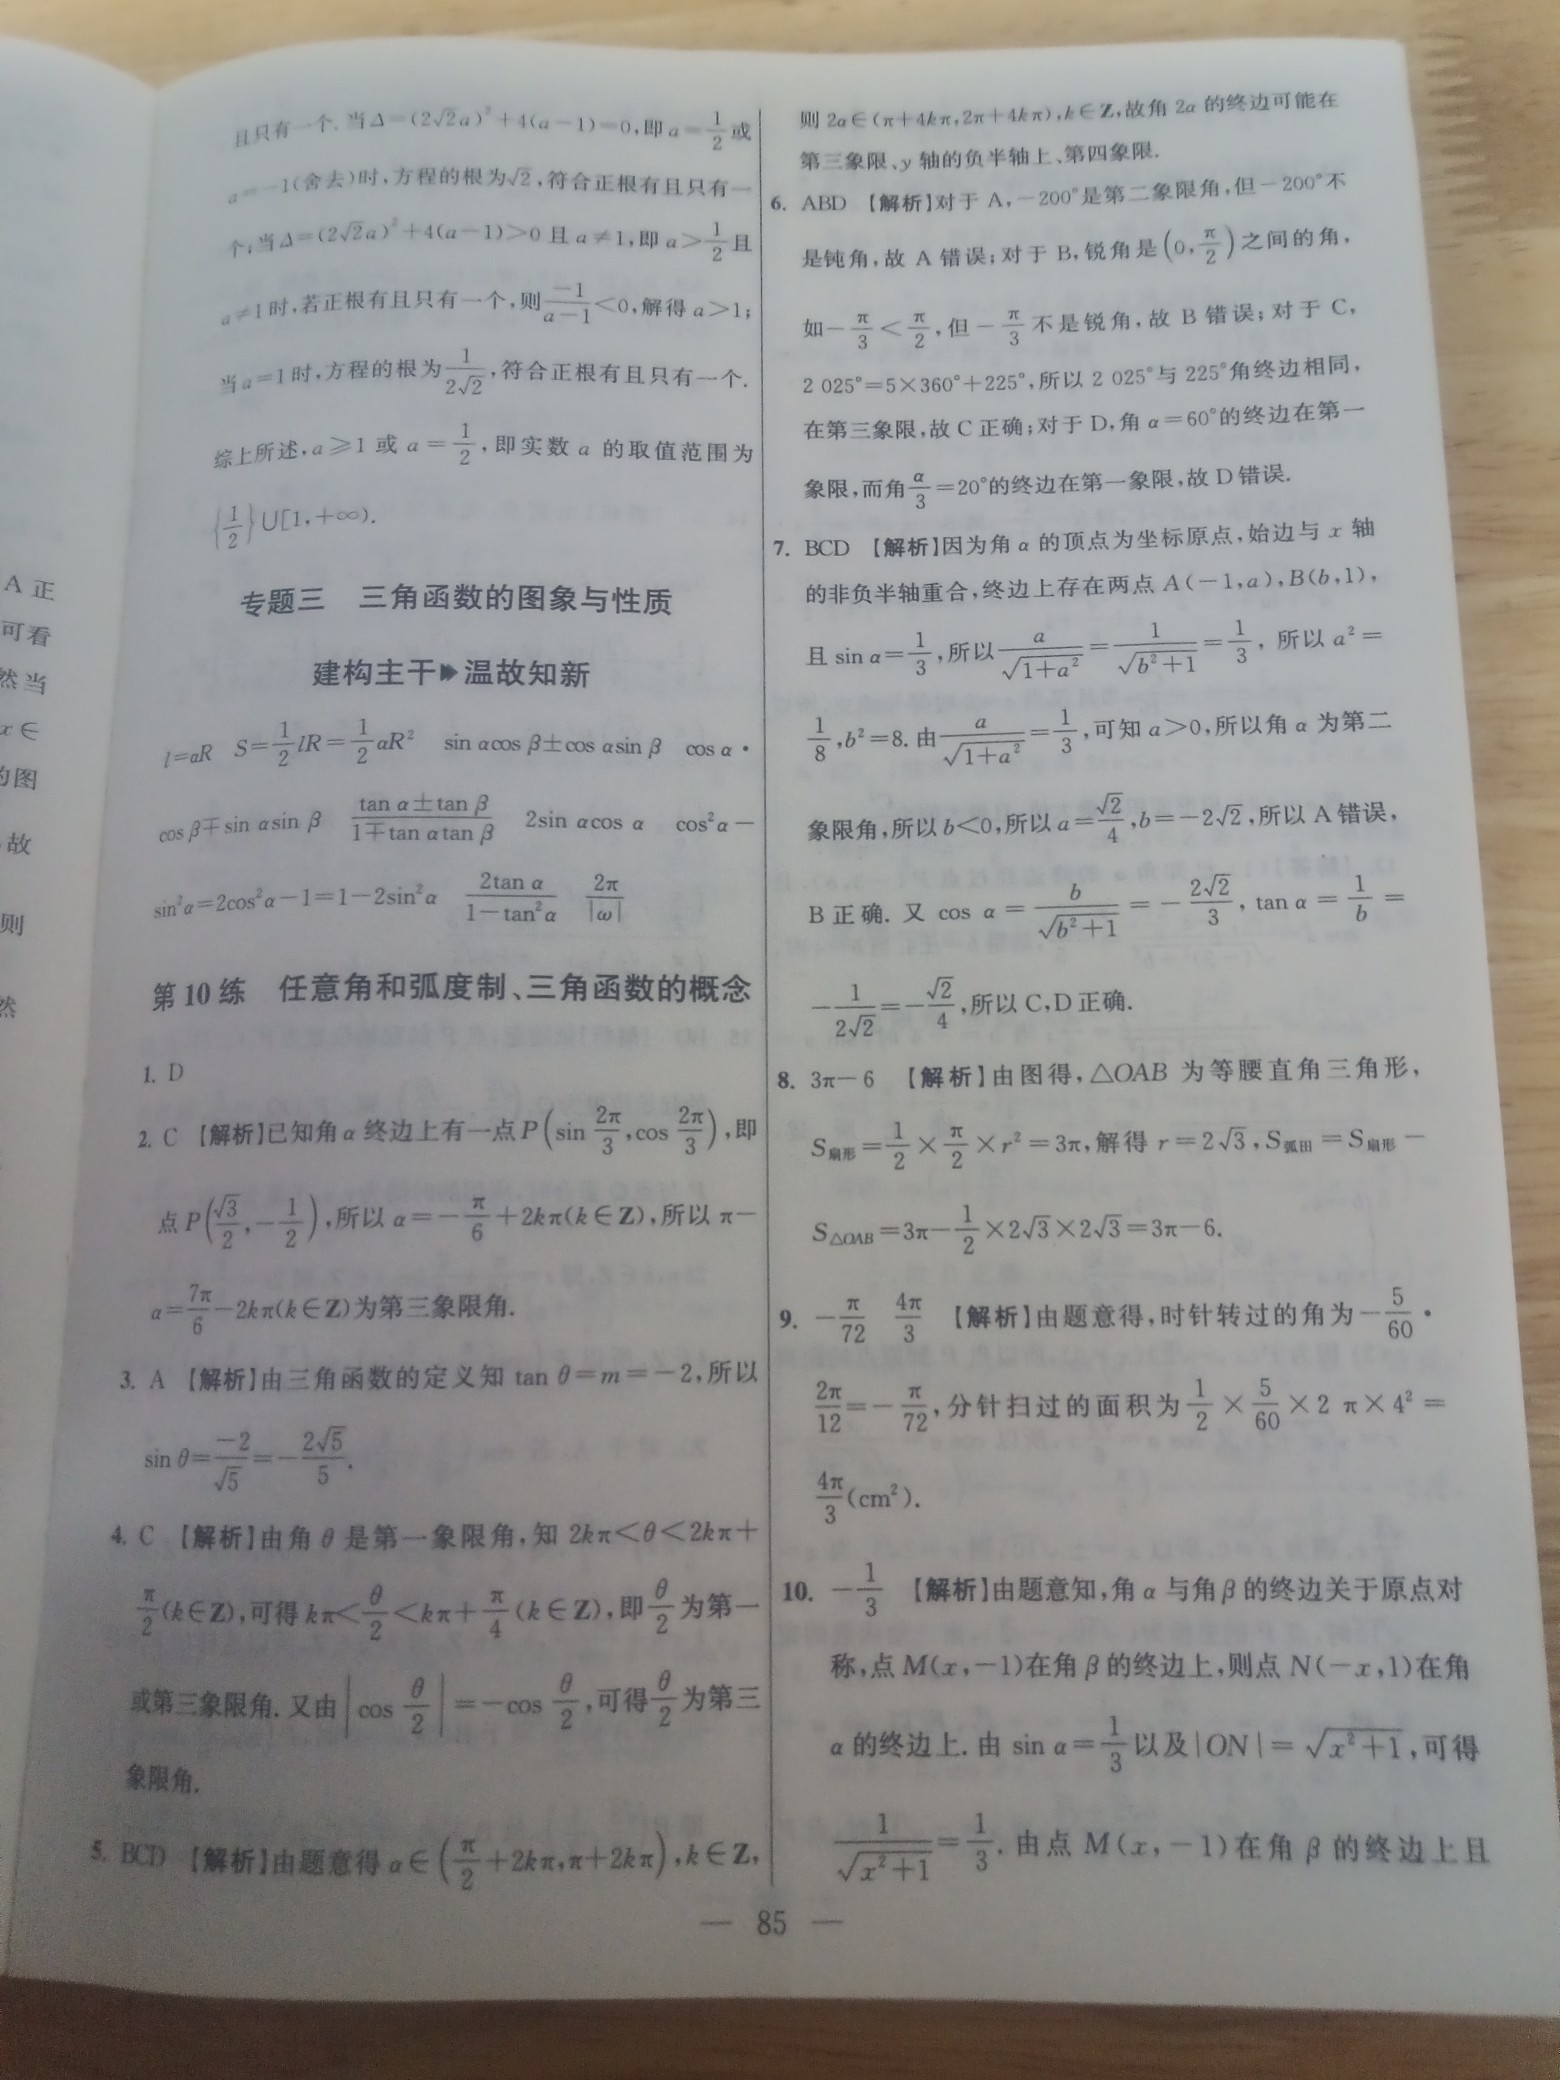 且只有一个.当Δ=(2√2a)²+4(a-1)=0,即a=1/2或
a=-1(舍去)时,方程的根为√2,符合正根有且只有一
个;当Δ=(2√2a)²+4(a-1)>0且a≠1,即a>1/2且
a≠1时,若正根有且只有一个,则-1/(a-1)<0,解得a>1;
当a=1时,方程的根为1/(2√2),符合正根有且只有一个.
综上所述,a≥1或a=1/2,即实数a的取值范围为
{1/2}∪[1,+∞).
专题三 三角函数的图象与性质
建构主干 温故知新
l=αR S=1/2lR=1/2αR² sin αcos β±cos αsin β cos α·
cos β∓sin αsin β (tan α±tan β)/(1∓tan αtan β) 2sin αcos α cos²α-
sin²α=2cos²α-1=1-2sin²α 2tan α/(1-tan²α) 2π/|ω|
第10练 任意角和弧度制、三角函数的概念
1. D
2. C 【解析】已知角α终边上有一点P(sin 2π/3,cos 2π/3),即
点P(√3/2,-1/2),所以α=-π/6+2kπ(k∈Z),所以π-
α=7π/6-2kπ(k∈Z)为第三象限角.
3. A 【解析】由三角函数的定义知tan θ=m=-2,所以
sin θ=-2/√5=-2√5/5.
4. C 【解析】由角θ是第一象限角,知2kπ<θ<2kπ+
π/2(k∈Z),可得kπ<θ/2<kπ+π/4(k∈Z),即θ/2为第一
或第三象限角.又由|cos θ/2|=-cos θ/2,可得θ/2为第三
象限角.
5. BCD 【解析】由题意得α∈(π/2+2kπ,π+2kπ),k∈Z,
则2α∈(π+4kπ,2π+4kπ),k∈Z,故角2α的终边可能在
第三象限、y轴的负半轴上、第四象限.
6. ABD 【解析】对于A,-200°是第二象限角,但-200°不
是钝角,故A错误;对于B,锐角是(0,π/2)之间的角,
如-π/3<π/2,但-π/3不是锐角,故B错误;对于C,
2 025°=5×360°+225°,所以2 025°与225°角终边相同,
在第三象限,故C正确;对于D,角α=60°的终边在第一
象限,而角α/3=20°的终边在第一象限,故D错误.
7. BCD 【解析】因为角α的顶点为坐标原点,始边与x轴
的非负半轴重合,终边上存在两点A(-1,a),B(b,1),
且sin α=1/3,所以a/√(1+a²)=1/√(b²+1)=1/3,所以a²=
1/8,b²=8.由a/√(1+a²)=1/3,可知a>0,所以角α为第二
象限角,所以b<0,所以a=√2/4,b=-2√2,所以A错误,
B正确.又cos α=b/√(b²+1)=-2√2/3,tan α=1/b=
-1/(2√2)=-√2/4,所以C,D正确.
8. 3π-6 【解析】由图得,△OAB为等腰直角三角形,
S扇形=1/2×π/2×r²=3π,解得r=2√3,S弧田=S扇形-
S△OAB=3π-1/2×2√3×2√3=3π-6.
9. -π/72 4π/3 【解析】由题意得,时针转过的角为-5/60·
2π/12=-π/72,分针扫过的面积为1/2×5/60×2 π×4²=
4π/3(cm²).
10. -1/3 【解析】由题意知,角α与角β的终边关于原点对
称,点M(x,-1)在角β的终边上,则点N(-x,1)在角
α的终边上.由sin α=1/3以及|ON|=√(x²+1),可得
1/√(x²+1)=1/3.由点M(x,-1)在角β的终边上且
— 85 —
A正
可看
然当
x∈
的图
故
则
然